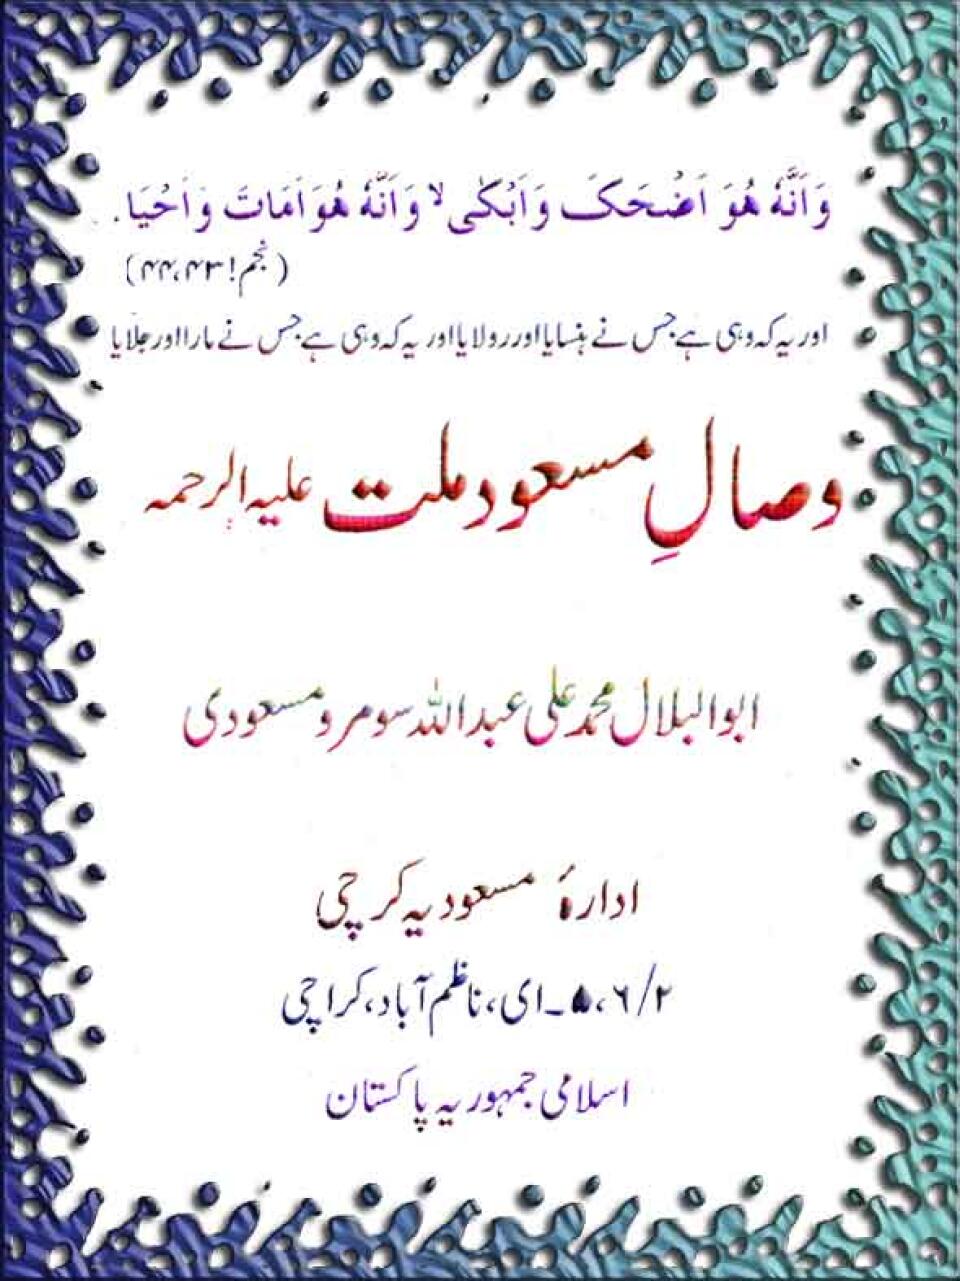 وَاَنَّهٗ هُوَ اَضْحَکَ وَاَبْکٰی ۙ وَاَنَّهٗ هُوَ اَمَاتَ وَاَحْیَا
(نجم! ۴۴،۴۳)
اور یہ کہ وہی ہے جس نے ہنسایا اور رولایا اور یہ کہ وہی ہے جس نے مارا اور جلایا
وصالِ مسعود ملت علیہ الرحمہ
ابو البلال محمد علی عبد اللہ سومرو مسعودی
ادارۂ مسعودیہ کرچی
۶/۲، ۵۔ای، ناظم آباد، کراچی
اسلامی جمہوریہ پاکستان